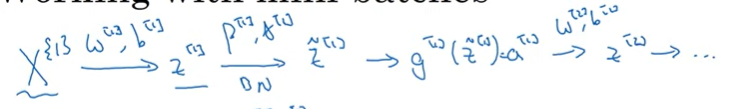 Working with mini-batches
X^{1} —W^[1], b^[1]→ z^[1] —β^[1], γ^[1] BN→ z̃^[1] → g^[1](z̃^[1]) = a^[1] —W^[2], b^[2]→ z^[2] → ...